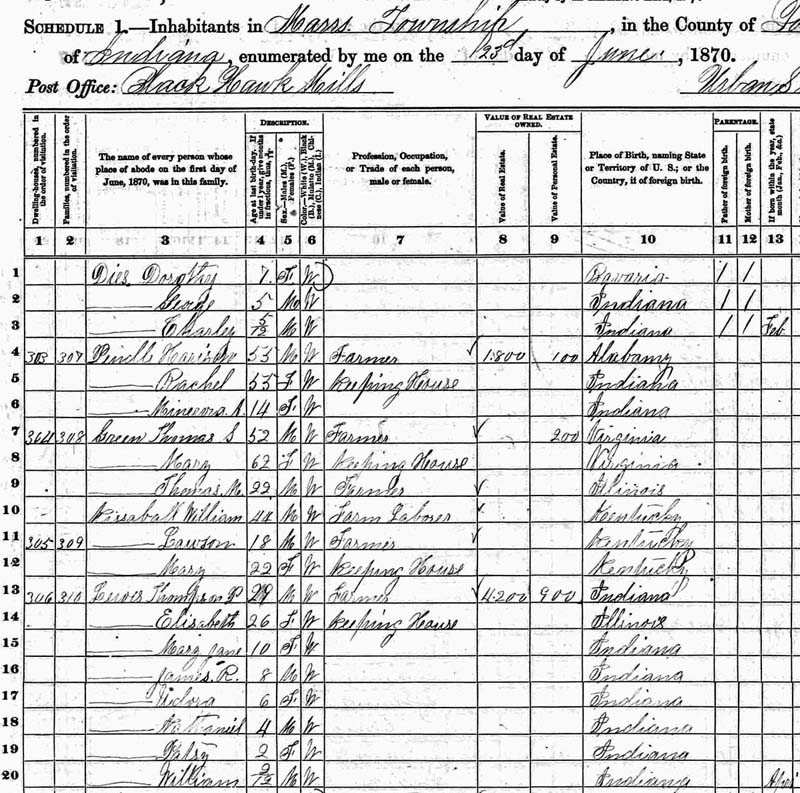 SCHEDULE 1.—Inhabitants in Marrs Township, in the County of
of Indiana, enumerated by me on the 23d day of June, 1870.
Post Office: Black Hawk Mills
DESCRIPTION. VALUE OF REAL ESTATE OWNED. PARENTAGE.
Dwelling-houses, numbered in the order of visitation. Families, numbered in the order of visitation. The name of every person whose place of abode on the first day of June, 1870, was in this family. Age at last birth-day. If under 1 year, give months in fractions, thus, Sex.—Males (M.), Females (F.) Color.—White (W.), Black (B.), Mulatto (M.), Chinese (C.), Indian (I.) Profession, Occupation, or Trade of each person, male or female. Value of Real Estate. Value of Personal Estate. Place of Birth, naming State or Territory of U. S.; or the Country, if of foreign birth. Father of foreign birth. Mother of foreign birth. If born within the year, state month (Jan., Feb., &c.)
1 2 3 4 5 6 7 8 9 10 11 12 13
1 Dies Dorothy 7 F W Bavaria 1 1
2 George 5 M W Indiana 1 1
3 Charles 5/12 M W Indiana 1 1 Feb
4 303 307 Harison 55 M W Farmer 1800 100 Alabama
5 Rachel 55 F W Keeping House Indiana
6 Minerva A 14 F W Indiana
7 304 308 Green Thomas S 52 M W Farmer 200 Virginia
8 Mary 62 F W Keeping House Virginia
9 Thomas M. 22 M W Farmer Illinois
10 William 44 M W Farm Laborer Kentucky
11 305 309 Lawson 18 M W Farmer Kentucky
12 Mary 22 F W Keeping House Kentucky
13 306 310 Lewis Thompson P 29 M W Farmer 4200 900 Indiana
14 Elisabeth 26 F W Keeping House Illinois
15 Mary Jane 10 F W Indiana
16 James R. 8 M W Indiana
17 6 F W Indiana
18 Nathaniel 4 M W Indiana
19 Patsy 2 F W Indiana
20 William 2/12 M W Indiana